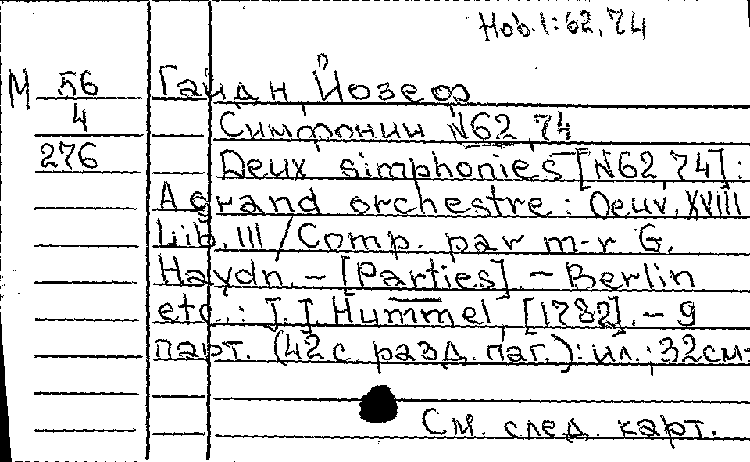 Hob.I:62,74
М 56 Гайдн, Йозеф
4 Симфонии N62,74
276 Deux simphonies [N62,74]:
A grand orchestre: Oeuv. XVIII
Lib. III / Comp. par m-r G.
Haydn. – [Parties]. – Berlin
etc.: J.J. Hummel, [1782]. – 9
парт. (42 с. разд. паг.): ил.; 32см.
См. след. карт.